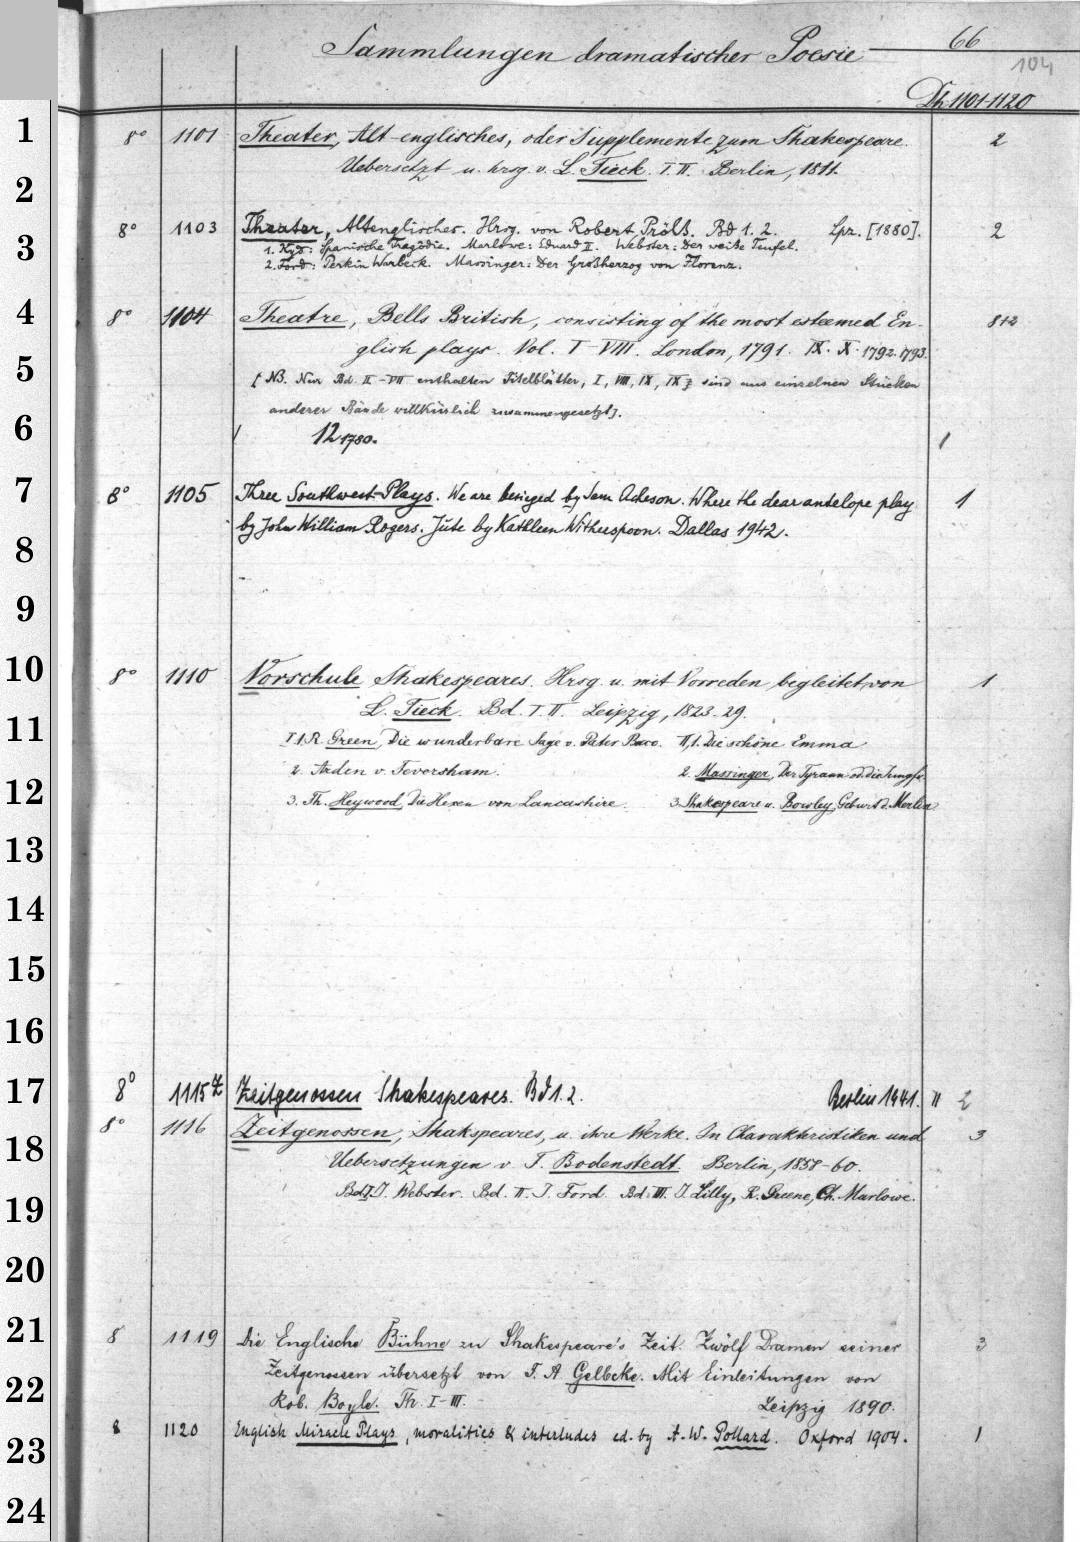 Sammlungen dramatischer Poesie 66
104
Dh 1101-1120
1
8° 1101 Theater, Alt-englisches, oder Supplemente zum Shakespeare. 2
2
Uebersetzt u. hrsg. v. L. Tieck. I. II. Berlin, 1811.
3
8° 1103 Theater, Altenglisches. Hrsg. von Robert Prölß. Bd 1. 2. Lpz. [1880]. 2
1. Kyd: Spanische Tragödie. Marlowe: Eduard II. Webster: Der weiße Teufel.
2. Ford: Perkin Warbeck. Massinger: Der Großherzog von Florenz.
4
8° 1104 Theatre, Bells British, consisting of the most esteemed En-
5
glish plays. Vol. I-VIII. London, 1791. IX. X. 1792. 1793.
[NB. Nur Bd. II-VII enthalten Titelblätter, I, VIII, IX, sind aus einzelnen Stücken
6
anderer Bände willkürlich zusammengesetzt].
12 1780. 1
7
8° 1105 Three Southwest Plays. We are besieged by Sam Acheson. Where the dear antelope play 1
8
by John William Rogers. Jute by Kathleen Witherspoon. Dallas 1942.
9
10
8° 1110 Vorschule Shakespeares. Hrsg. u. mit Vorreden begleitet von 1
11
L. Tieck. Bd. I. II. Leipzig, 1823-29.
I 1. R. Green, Die wunderbare Sage v. Pater Baco. II, 1. Die schöne Emma
12
2. Arden v. Feversham. 2. Massinger, Der Tyrann od. die Jungfr.
3. Th. Heywood, Die Hexen von Lancashire. 3. Shakespeare u. Rowley, Geburt d. Merlin
13
14
15
16
17
8° 1115 Z Zeitgenossen Shakespeares. Bd 1. 2. Berlin 1941. II 2
18
8° 1116 Zeitgenossen, Shakspeares, u. ihre Werke. In Charakteristiken und 3
Uebersetzungen v. F. Bodenstedt. Berlin, 1858-60.
19
Bd. I. J. Webster. Bd. II. J. Ford. Bd. III. J. Lilly, R. Greene, Ch. Marlowe.
20
21
8 1119 Die Englische Bühne zu Shakespeare's Zeit. Zwölf Dramen seiner 3
22
Zeitgenossen übersetzt von F. A. Gelbcke. Mit Einleitungen von
Rob. Boyle. Th. I-III. Leipzig 1890.
23
8 1120 English Miracle Plays, moralities & interludes ed. by A. W. Pollard. Oxford 1904. 1
24